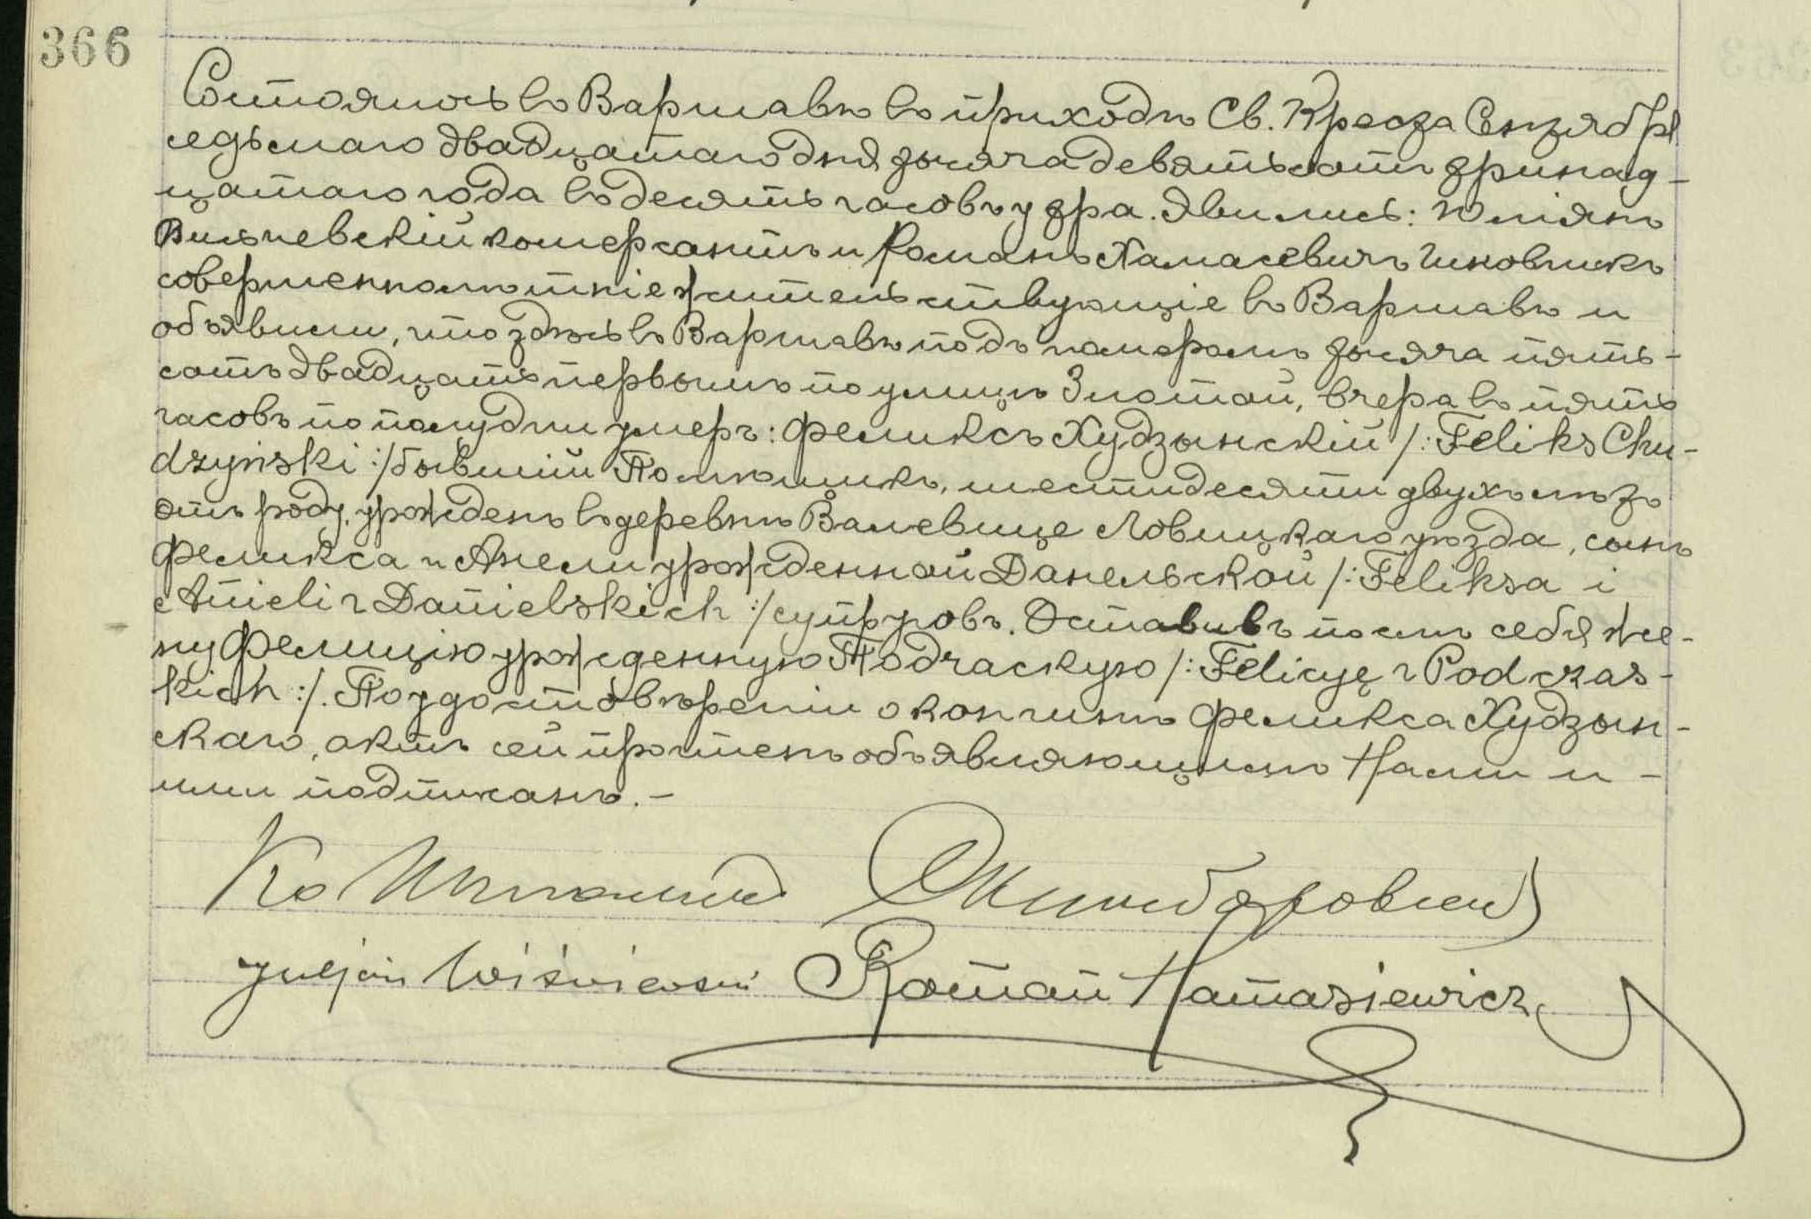 366
Состоялось въ Варшавѣ въ приходѣ Св. Креста Сентября
седьмаго двадцатаго дня тысяча девятьсотъ тринад-
цатаго года въ десять часовъ утра. Явились: Юліянъ
Висьневскій комерсантъ и Романъ Хамасевичъ чиновникъ
совершеннолѣтніе жительствующіе въ Варшавѣ и
объявили, что здѣсь въ Варшавѣ подъ номеромъ тысяча пять-
сотъ двадцать первымъ по улицѣ Злотой, вчера въ пять
часовъ по полудни умеръ: Феликсъ Худзынскій /: Feliks Chu-
dzyński :/ бывшій Помѣщикъ, шестидесяти двухъ лѣтъ
отъ роду, урожденъ въ деревнѣ Валевице Ловицкаго уѣзда, сынъ
Феликса и Анели урожденной Данельской /: Feliksa i
Anieli z Danielskich :/ супруговъ. Оставивъ послѣ себя же-
ну Фелицію урожденную Подчаскую /: Felicyę z Podczas-
kich :/. По удостовѣреніи о кончинѣ Феликса Худзын-
скаго, актъ сей прочтенъ объявляющимъ Нами и -
ими подписанъ. -
Кс
Juljan Wiśniewski Roman Hamasiewicz